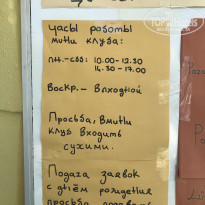 Часы работы
мини клуба:
пн.-сб.: 10.00-12.30
14.30-17.00
Воскр. - Выходной
Просьба, в мини
клуб входить
сухими.
Подача заявок
с днём рождения
просьба